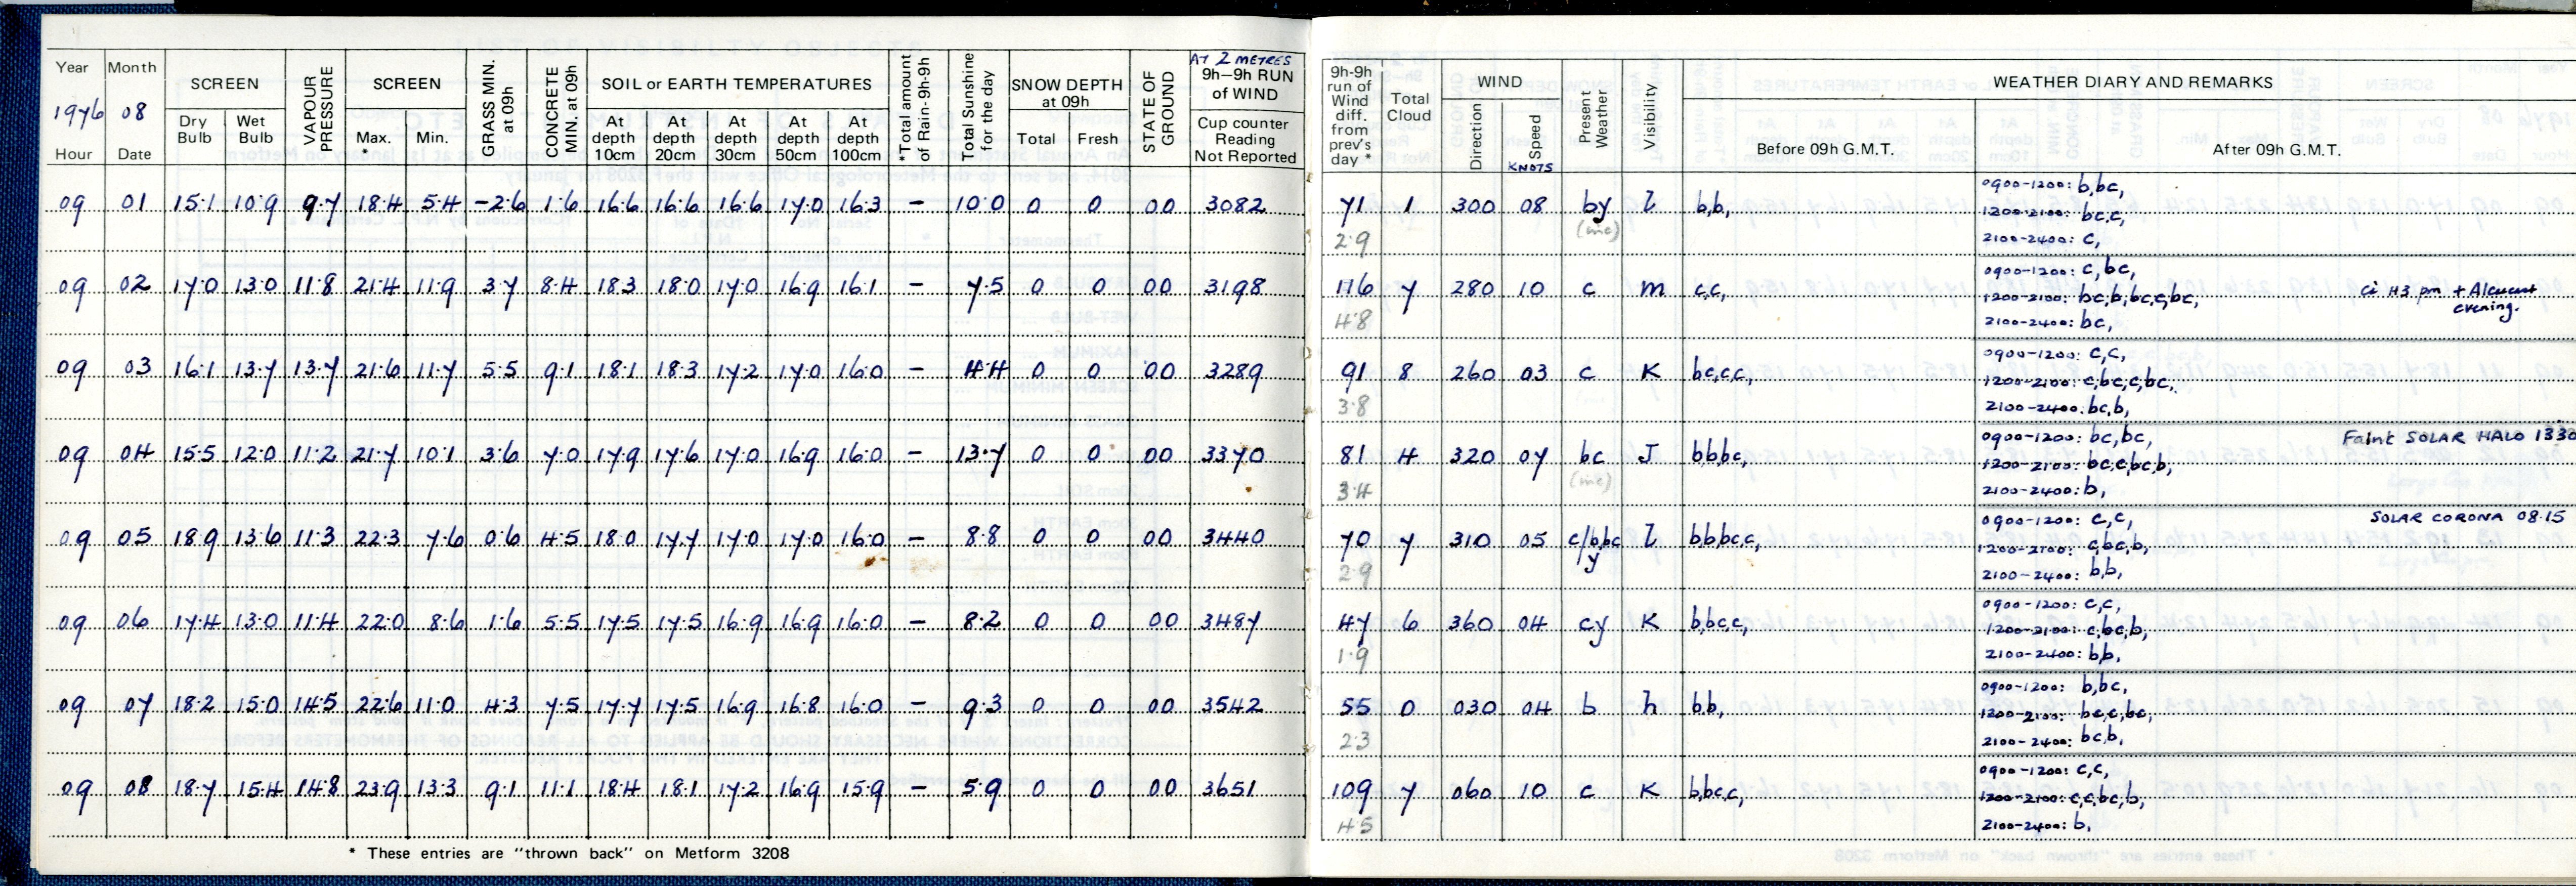 Year Month SCREEN VAPOUR PRESSURE SCREEN GRASS MIN. at 09h CONCRETE MIN. at 09h SOIL or EARTH TEMPERATURES *Total amount of Rain- 9h-9h Total Sunshine for the day SNOW DEPTH at 09h STATE OF GROUND AT 2 METRES 9h—9h RUN of WIND
1976 08 Dry Bulb Wet Bulb Max. Min. At depth 10cm* At depth 20cm At depth 30cm At depth 50cm At depth 100cm Total Fresh Cup counter Reading Not Reported
Hour Date
09 01 15.1 10.9 9.7 18.4 5.4 -2.6 1.6 16.6 16.6 16.6 17.0 16.3 – 10.0 0 0 00 3082
09 02 17.0 13.0 11.8 21.4 11.9 3.7 8.4 18.3 18.0 17.0 16.9 16.1 – 7.5 0 0 00 3198
09 03 16.1 13.7 13.7 21.6 11.7 5.5 9.1 18.1 18.3 17.2 17.0 16.0 – 4.4 0 0 00 3289
09 04 15.5 12.0 11.2 21.7 10.1 3.6 7.0 17.9 17.6 17.0 16.9 16.0 – 13.7 0 0 00 3370
09 05 18.9 13.6 11.3 22.3 7.6 0.6 4.5 18.0 17.7 17.0 17.0 16.0 – 8.8 0 0 00 3440
09 06 17.4 13.0 11.4 22.0 8.6 1.6 5.5 17.5 17.5 16.9 16.9 16.0 – 8.2 0 0 00 3487
09 07 18.2 15.0 14.5 22.6 11.0 4.3 7.5 17.7 17.5 16.9 16.8 16.0 – 9.3 0 0 00 3542
09 08 18.7 15.4 14.8 23.9 13.3 9.1 11.1 18.4 18.1 17.2 16.9 15.9 – 5.9 0 0 00 3651
* These entries are "thrown back" on Metform 3208
9h-9h run of Wind diff. from prev's day * Total Cloud WIND Present Weather Visibility WEATHER DIARY AND REMARKS
Direction Speed KNOTS Before 09h G.M.T. After 09h G.M.T.
71 1 300 08 by l b,b, 0900-1200: b,bc,
2.9 (mc) 1200-2100: bc,c,
2100-2400: c,
116 7 280 10 c m c,c, 0900-1200: c,bc,
4.8 1200-2100: bc,b,bc,c,bc, Ci H3 pm + Alcucast
2100-2400: bc, evening.
91 8 260 03 c K bc,c,c, 0900-1200: c,c,
3.8 1200-2100: c,bc,c,bc,
2100-2400: bc,b,
81 4 320 07 bc J b,b,bc, 0900-1200: bc,bc, Faint SOLAR HALO 1330
3.4 (mc) 1200-2100: bc,c,bc,b,
2100-2400: b,
70 7 310 05 c/b,bc y l b,b,bc,c, 0900-1200: c,c, SOLAR CORONA 08.15
2.9 1200-2100: c,bc,b,
2100-2400: b,b,
47 6 360 04 cy K b,bc,c, 0900-1200: c,c,
1.9 1200-2100: c,bc,b,
2100-2400: b,b,
55 0 030 04 b h b,b, 0900-1200: b,bc,
2.3 1200-2100: bc,c,bc,
2100-2400: bc,b,
109 7 060 10 c K b,bc,c, 0900-1200: c,c,
4.5 1200-2100: c,c,bc,b,
2100-2400: b,